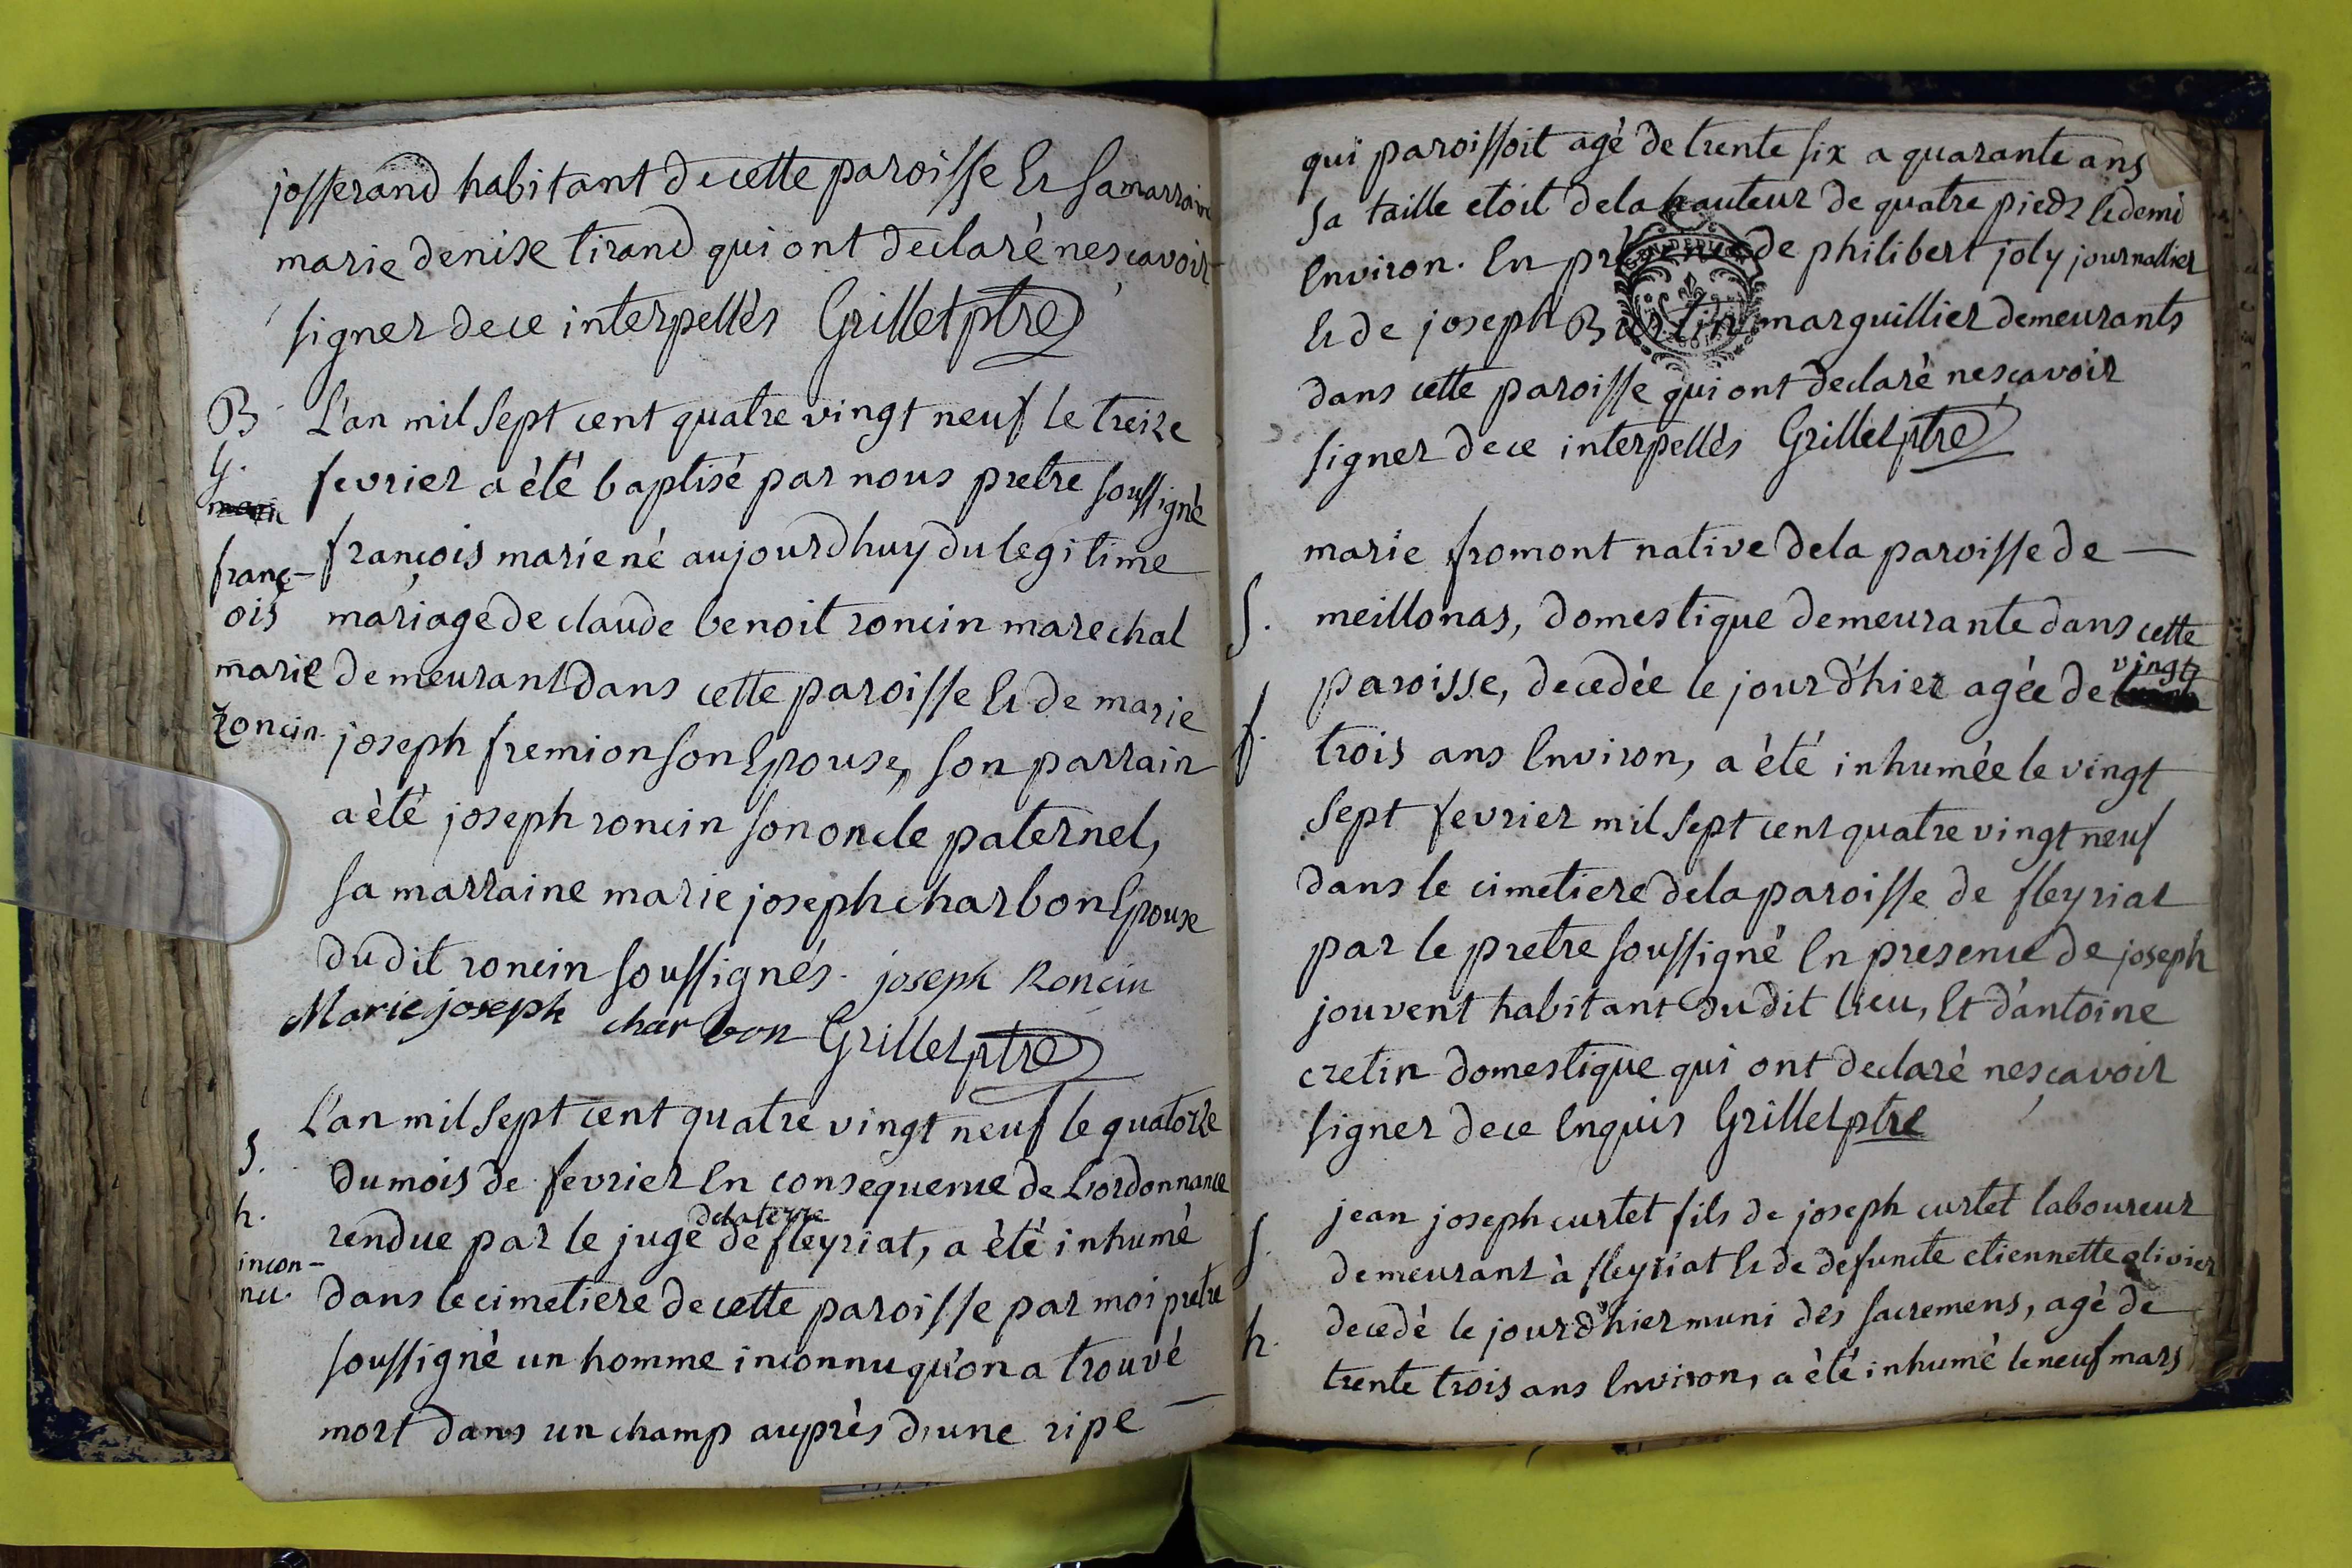 josserand habitant de cette paroisse et sa marraine
marie denise tirand qui ont declaré ne sçavoir
signer de ce interpellés Grillet ptre
B
G.
franç-
ois
marie
roncin
L'an mil sept cent quatre vingt neuf le treize
fevrier a èté baptisé par nous pretre soussigné
françois marie né aujourdhuy du legitime
mariage de claude benoit roncin marechal
demeurant dans cette paroisse et de marie
joseph fremion son Epouse, son parrain
a èté joseph roncin son oncle paternel,
sa marraine marie joseph charbon Epouse
dudit roncin soussignés. joseph Roncin
Marie joseph charbon Grillet ptre
S.
h.
incon-
nu.
L'an mil sept cent quatre vingt neuf le quatorze
du mois de fevrier En consequence de L'ordonnance
de la terre
rendue par le juge de fleyriat, a èté inhumé
dans le cimetiere de cette paroisse par moi pretre
soussigné un homme inconnu qu'on a trouvé
mort dans un champ auprès d'une ripe
qui paroissoit agé de trente six a quarante ans
sa taille etoit de la hauteur de quatre pieds et demi
Environ. En presence de philibert joly journallier
et de joseph marguillier demeurants
dans cette paroisse qui ont declaré ne sçavoir
signer de ce interpellés Grillet ptre
S.
f.
marie fromont native de la paroisse de
meillonas, domestique demeurante dans cette
paroisse, decedée le jour d'hier agée de vingt
trois ans Environ, a èté inhumée le vingt
sept fevrier mil sept cent quatre vingt neuf
dans le cimetiere de la paroisse de fleyriat
par le pretre soussigné En presence de joseph
jouvent habitant dudit lieu, Et d'antoine
cretin domestique qui ont declaré ne sçavoir
signer de ce Enquis Grillet ptre
S.
h.
jean joseph curtet fils de joseph curtet laboureur
demeurant à fleyriat et de defuncte etiennette olivier
decedé le jour d'hier muni des sacremens, agé de
trente trois ans Environ, a èté inhumé le neuf mars